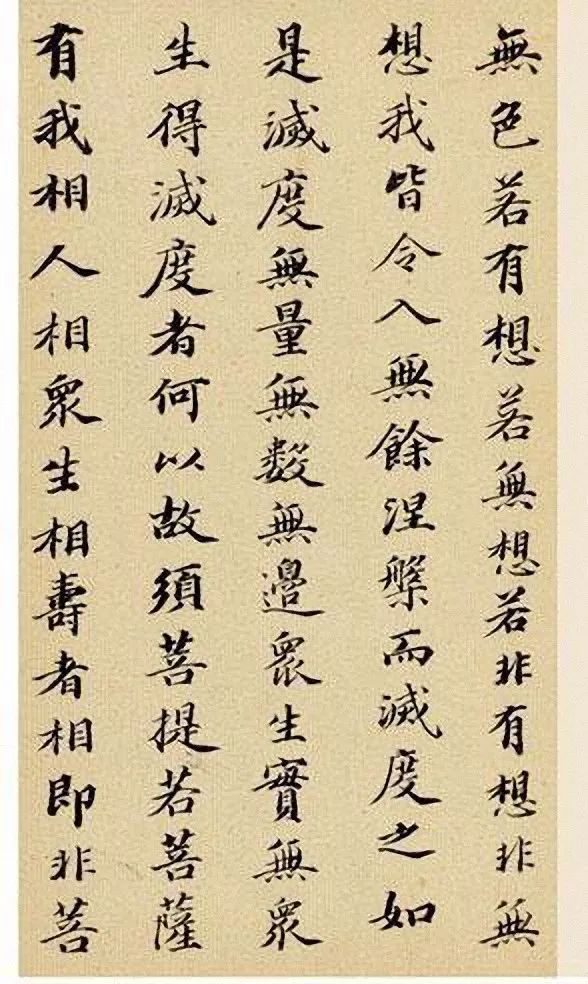 無色若有想若無想若非有想非無
想我皆令入無餘涅槃而滅度之如
是滅度無量無數無邊眾生實無眾
生得滅度者何以故須菩提若菩薩
有我相人相眾生相壽者相即非菩